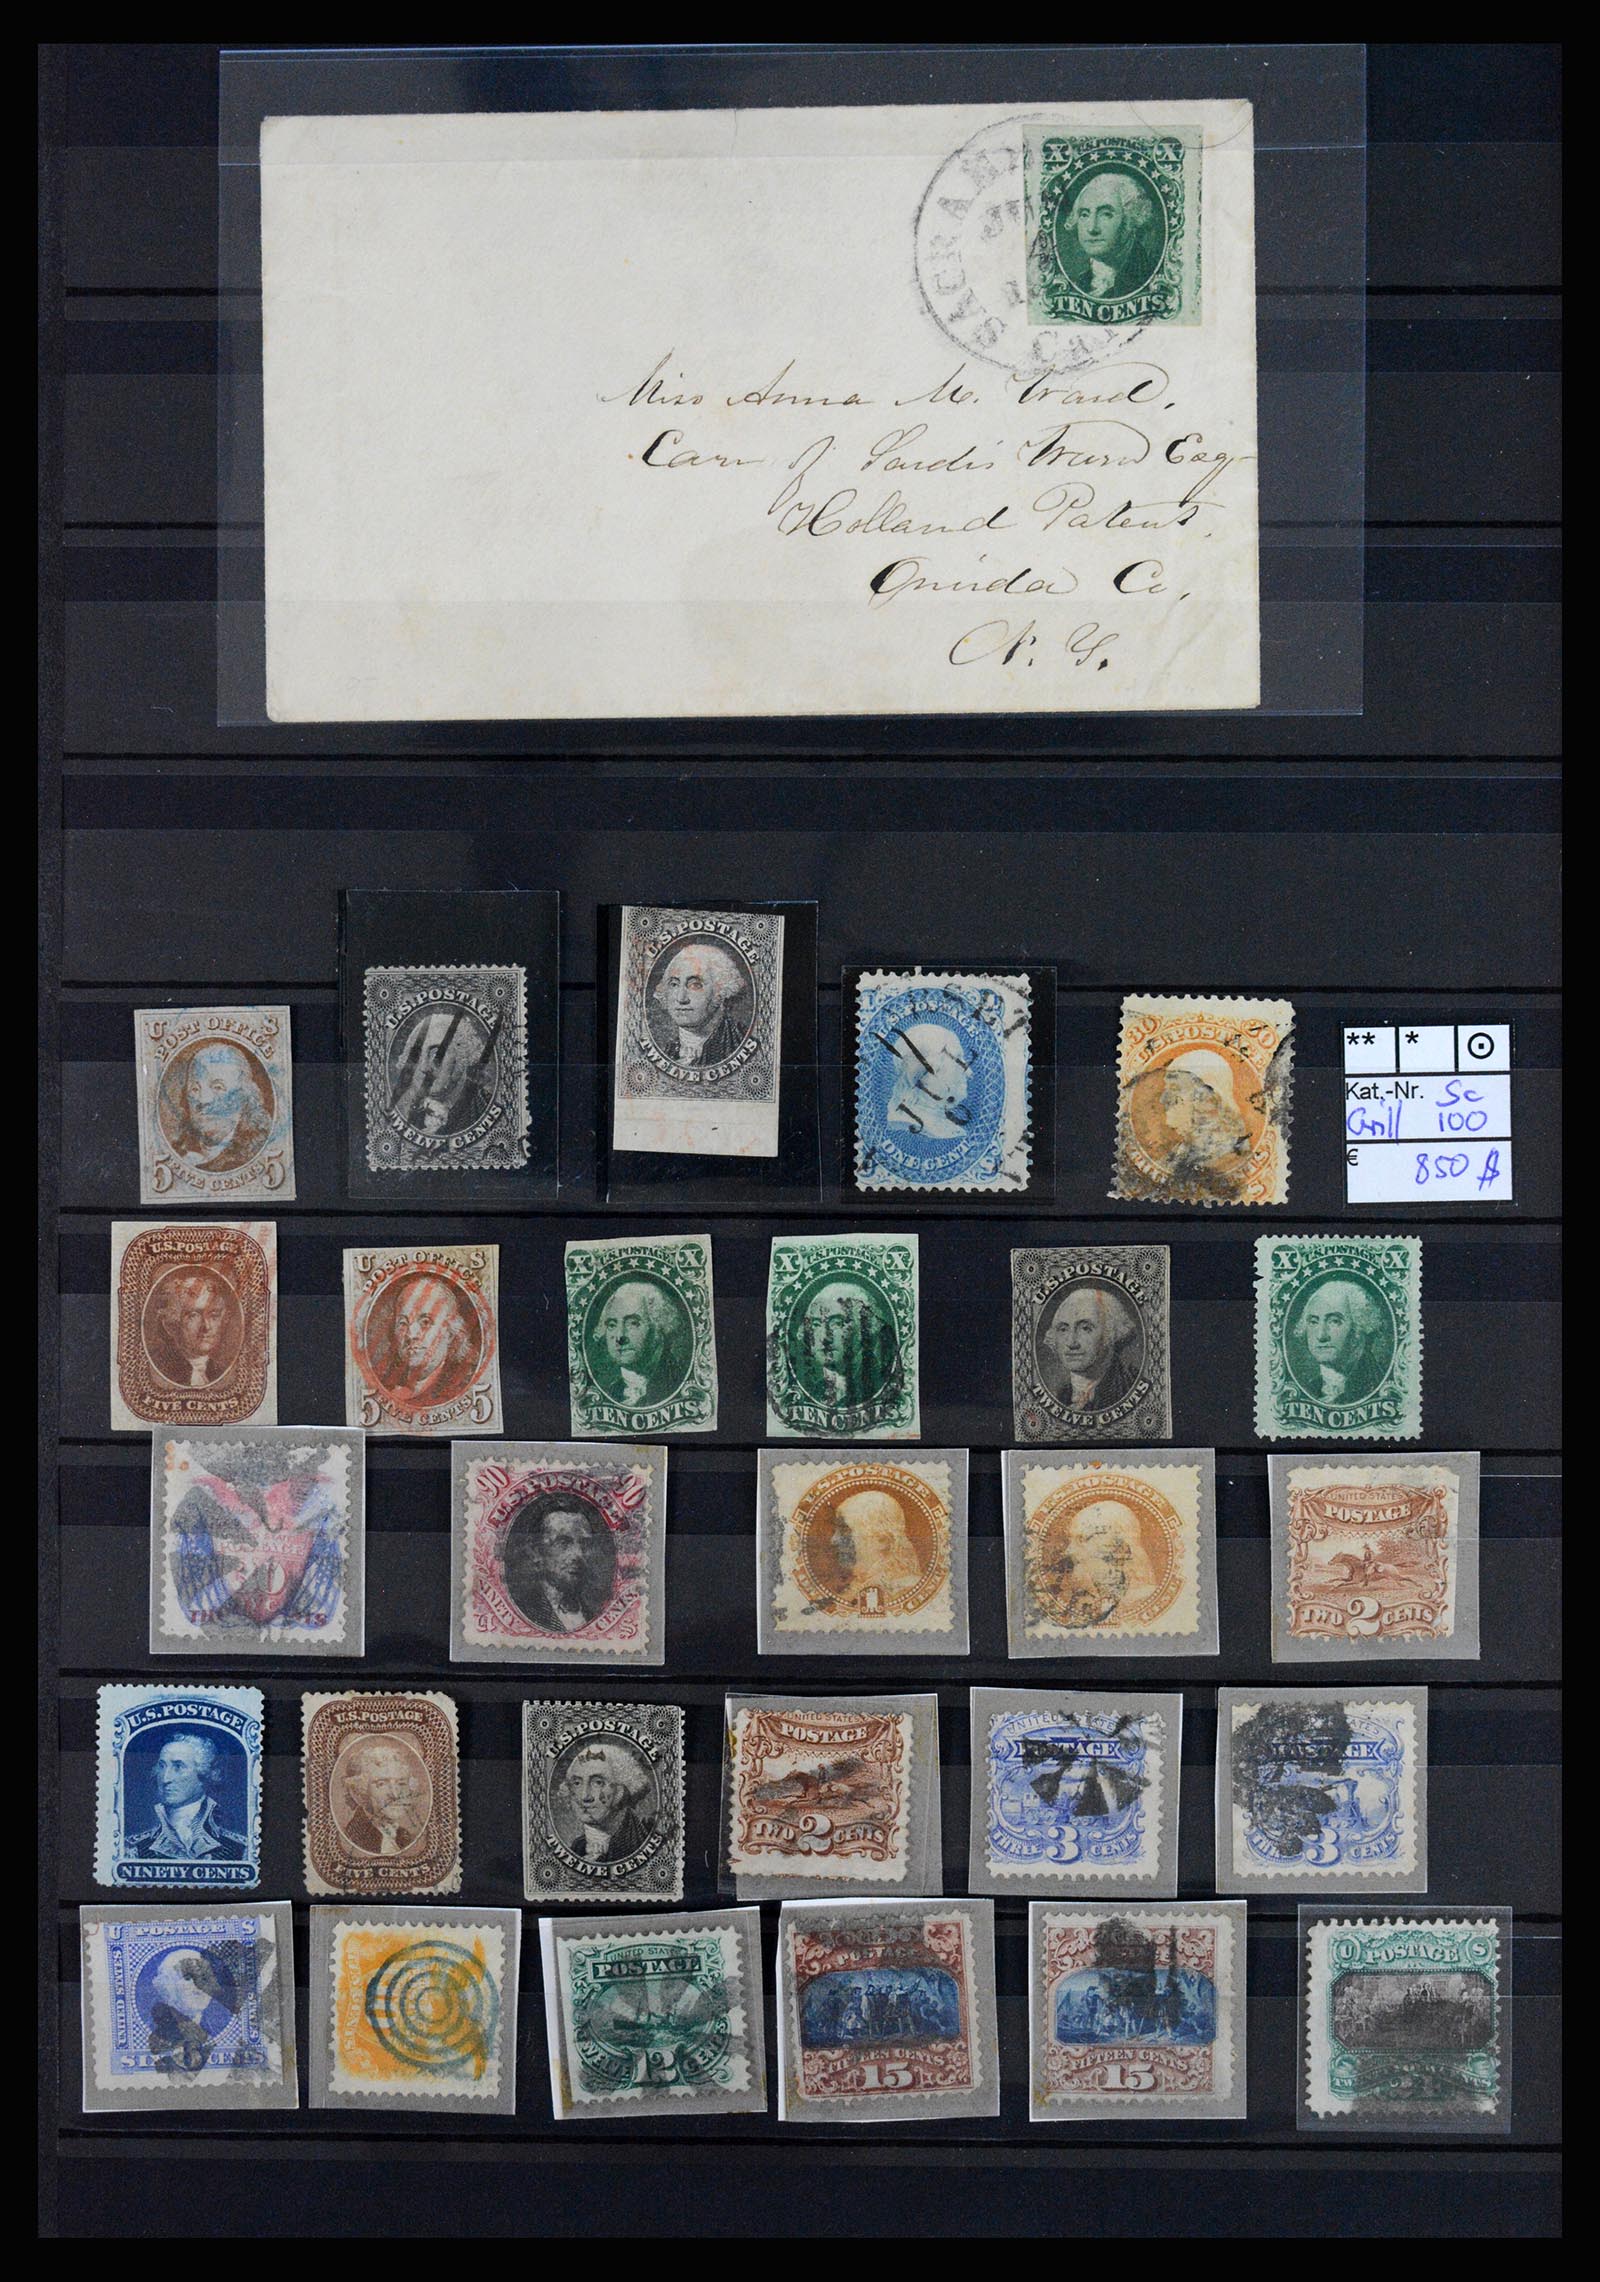 X U.S. POSTAGE X
TEN CENTS
SACRAM
Cal
Miss Anna M. Ward.
Care of Sardis Ward Esq
Holland Patent,
Oneida Co.
N. Y.
U S
POST OFFICE
5 FIVE CENTS 5
U.S. POSTAGE
TWELVE CENTS
U.S. POSTAGE
TWELVE CENTS
U.S. POSTAGE
JUL
ONE CENT
30 U.S. POSTAGE 30
** * ⊙
Kat.-Nr. Sc
Grill 100
€ 850 $
U.S. POSTAGE
FIVE CENTS
U S
POST OFFICE
5 FIVE CENTS 5
X U.S. POSTAGE X
TEN CENTS
X U.S. POSTAGE X
TEN CENTS
U.S. POSTAGE
TWELVE CENTS
X U.S. POSTAGE X
TEN CENTS
POSTAGE
30
CENTS
90 U.S. POSTAGE 90
NINETY CENTS
U.S. POSTAGE
1
CENT
U.S. POSTAGE
CENT
UNITED STATES
POSTAGE
TWO 2 CENTS
U.S. POSTAGE
NINETY CENTS
U.S. POSTAGE
FIVE CENTS
U.S. POSTAGE
TWELVE CENTS
UNITED STATES
POSTAGE
TWO 2 CENTS
UNITED STATES
POSTAGE
THREE 3 CENTS
POSTAGE
3 CENTS
U POSTAGE S
UNITED STATES
SIX 6 CENTS
UNITED STATES
POSTAGE
12 CENTS
POSTAGE
FIFTEEN CENTS
15
FIFTEEN CENTS
15
U POSTAGE S
CENTS